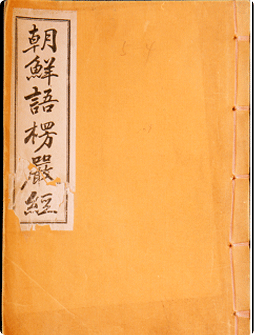 朝鮮語楞嚴經